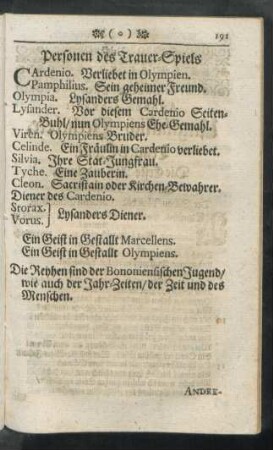 ( o ) 191
Personen des Trauer-Spiels
CArdenio. Verliebet in Olympien.
Pamphilius. Sein geheimer Freund.
Olympia. Lysanders Gemahl.
Lysander. Vor diesem Cardenio Seiten-
Buhl/ nun Olympiens Ehe-Gemahl.
Viren. Olympiens Bruder.
Celinde. Ein Fräulin in Cardenio verliebet.
Silvia. Ihre Stat-Jungfrau.
Tyche. Eine Zauberin.
Cleon. Sacristain oder Kirchen-Bewahrer.
Diener des Cardenio.
Storax.
Vorus. } Lysanders Diener.
Ein Geist in Gestallt Marcellens.
Ein Geist in Gestallt Olympiens.
Die Reyhen sind der Bononiensischen Jugend/
wie auch der Jahr-Zeiten/ der Zeit und des
Menschen.
ANDRE-